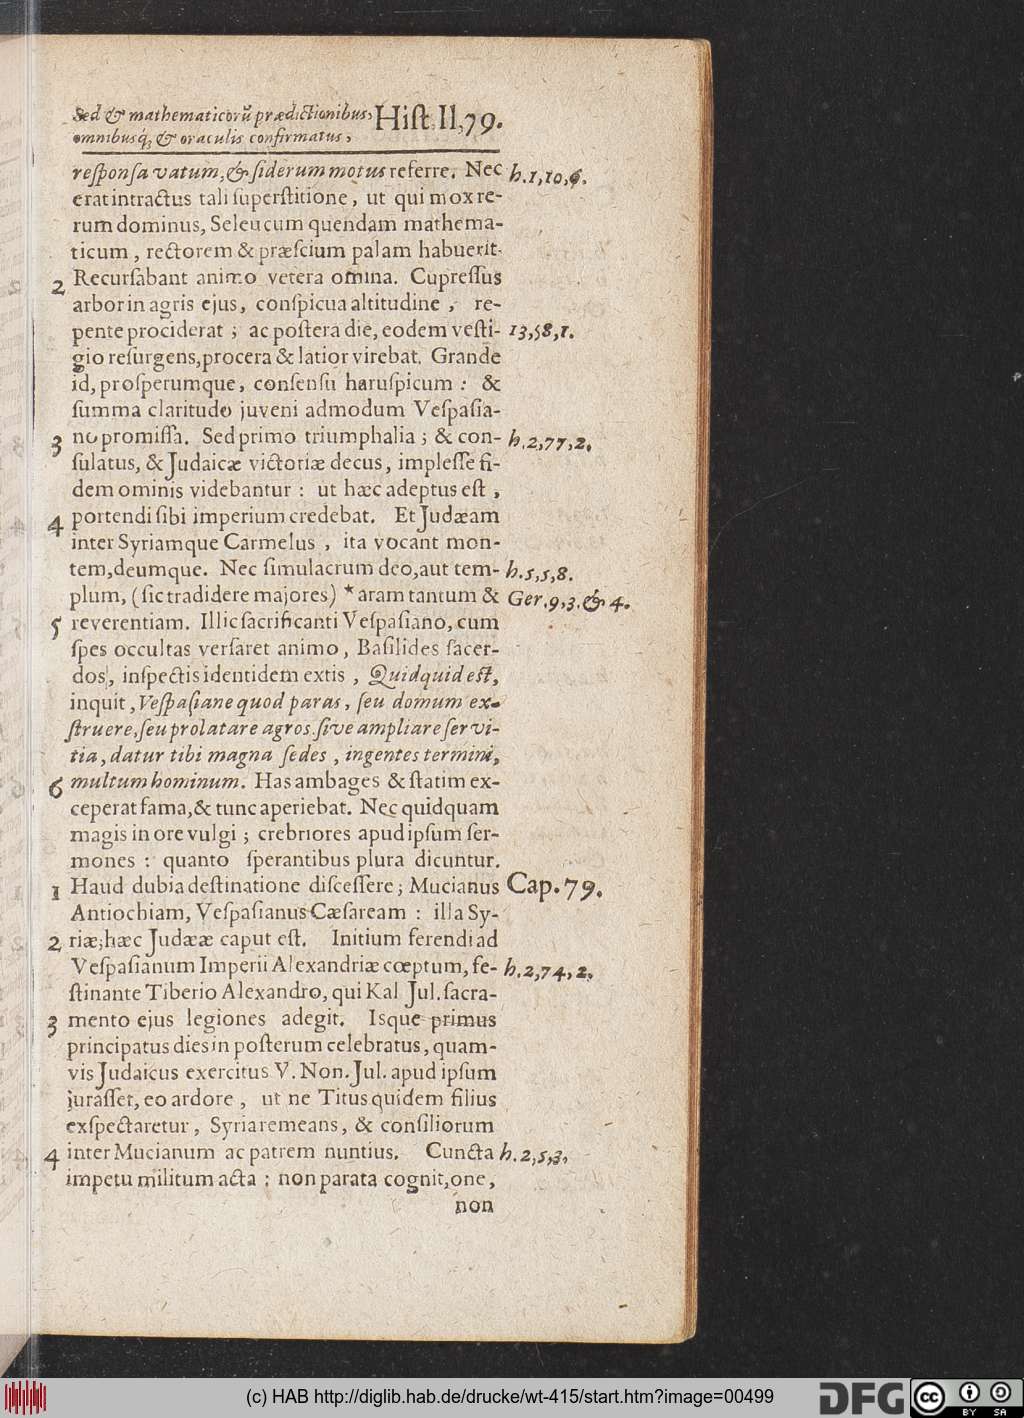 Sed & mathematicorũ prædictionibus, Hist. II, 79.
omnibusq́; & oraculis confirmatus,
responſa vatum, & ſiderum motus referre. Nec h. 1, 10, 6.
erat intractus tali ſuperſtitione, ut qui mox re-
rum dominus, Seleucum quendam mathema-
ticum, rectorem & præſcium palam habuerit.
2 Recurſabant animo vetera omina. Cupreſſus
arbor in agris ejus, conſpicua altitudine, re-
pente prociderat; ac poſtera die, eodem veſti- 13, 58, 1.
gio reſurgens, procera & latior virebat. Grande
id, proſperumque, conſenſu haruſpicum: &
ſumma claritudo juveni admodum Veſpaſia-
3 no promiſſa. Sed primo triumphalia; & con- h. 2, 77, 2.
ſulatus, & Judaicæ victoriæ decus, impleſſe fi-
dem ominis videbantur: ut hæc adeptus eſt,
4 portendi ſibi imperium credebat. Et Judæam
inter Syriamque Carmelus, ita vocant mon-
tem, deumque. Nec ſimulacrum deo, aut tem- h. 5, 5, 8.
plum, (ſic tradidere majores) * aram tantum & Ger. 9, 3. & 4.
5 reverentiam. Illic ſacrificanti Veſpaſiano, cum
ſpes occultas verſaret animo, Baſilides ſacer-
dos, inſpectis identidem extis, Quidquid eſt,
inquit, Veſpaſiane quod paras, ſeu domum ex-
ſtruere, ſeu prolatare agros. ſive ampliare ſervi-
tia, datur tibi magna ſedes, ingentes termini,
6 multum hominum. Has ambages & ſtatim ex-
ceperat fama, & tunc aperiebat. Nec quidquam
magis in ore vulgi; crebriores apud ipſum ſer-
mones: quanto ſperantibus plura dicuntur.
1 Haud dubia deſtinatione diſceſſere; Mucianus Cap. 79.
Antiochiam, Veſpaſianus Cæſaream: illa Sy-
2 riæ; hæc Judææ caput eſt. Initium ferendi ad
Veſpaſianum Imperii Alexandriæ cœptum, fe- h. 2, 74, 2.
ſtinante Tiberio Alexandro, qui Kal Jul. ſacra-
3 mento ejus legiones adegit. Isque primus
principatus dies in poſterum celebratus, quam-
vis Judaicus exercitus V. Non. Jul. apud ipſum
juraſſet, eo ardore, ut ne Titus quidem filius
exſpectaretur, Syria remeans, & conſiliorum
4 inter Mucianum ac patrem nuntius. Cuncta h. 2, 5, 3.
impetu militum acta: non parata cognit,one,
non
(c) HAB http://diglib.hab.de/drucke/wt-415/start.htm?image=00499 DFG cc BY SA